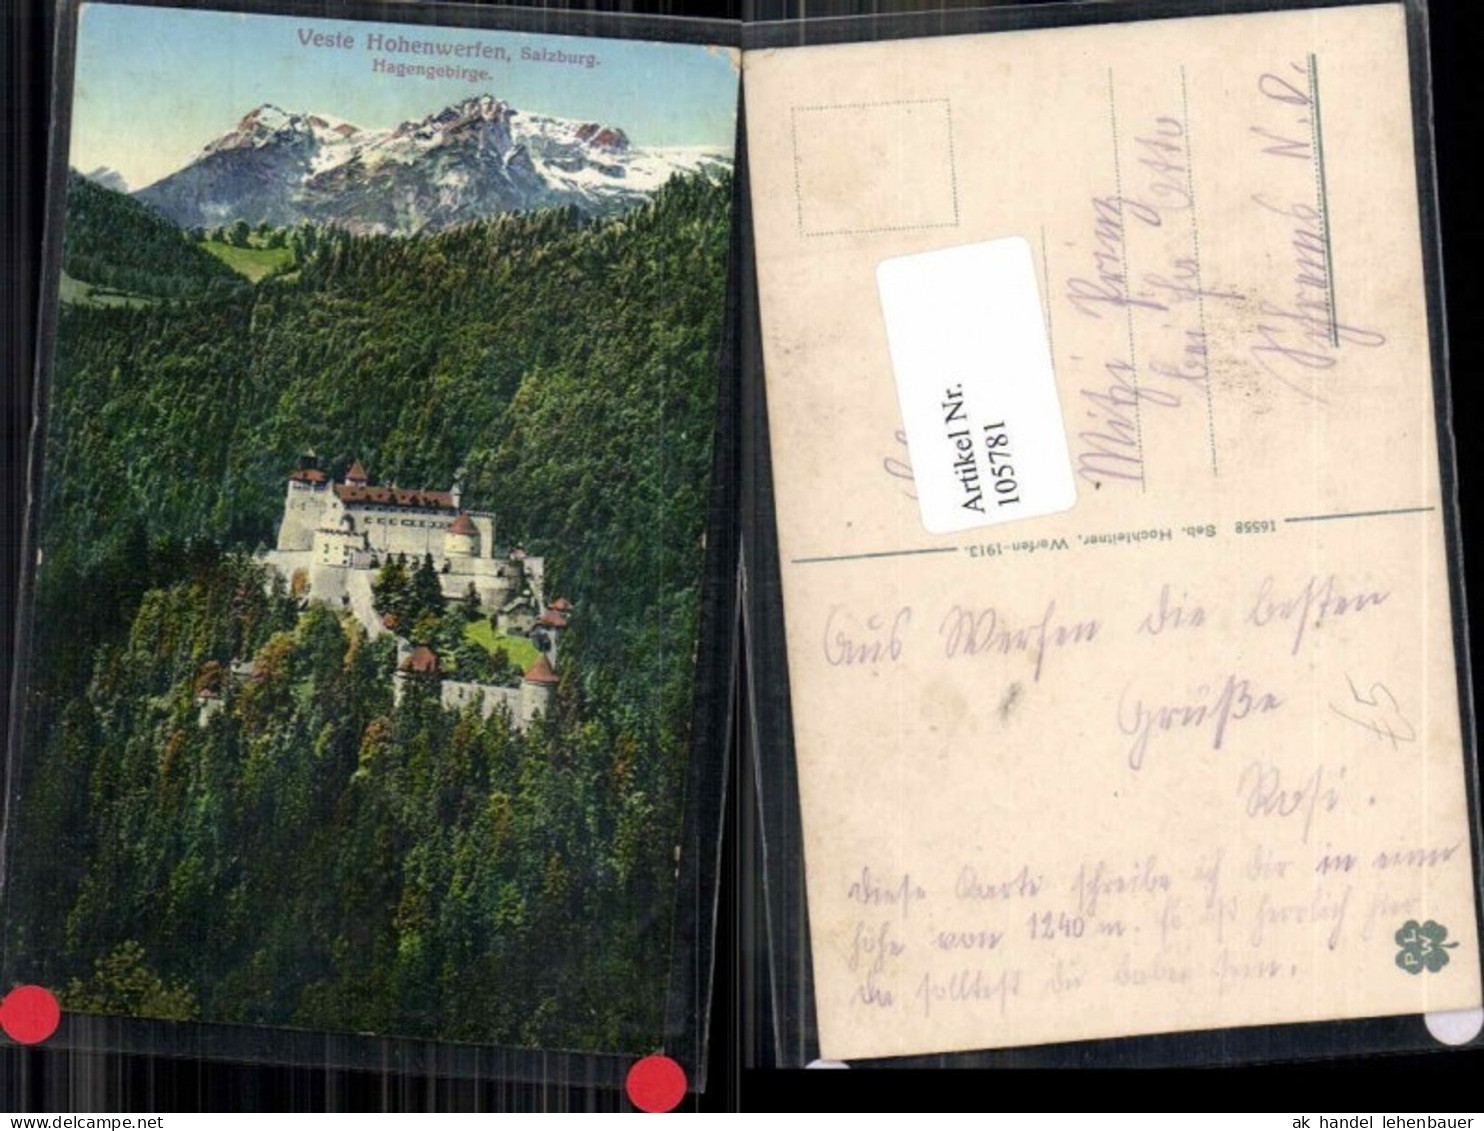 Veste Hohenwerfen, Salzburg.
Hagengebirge.
Artikel Nr.
105781
Mitzi Prinz
bei Fr Otto
Schrems N.Ö.
16558 Seb. Hochleitner, Werfen-1913.
Aus Werfen die besten
Grüße
Rosi.
diese Karte schreibe ich dir in einer
höhe von 1240 m. Es ist herrlich hier
da solltest du dabei sein.
€5
PLW
ak handel lehenbauer